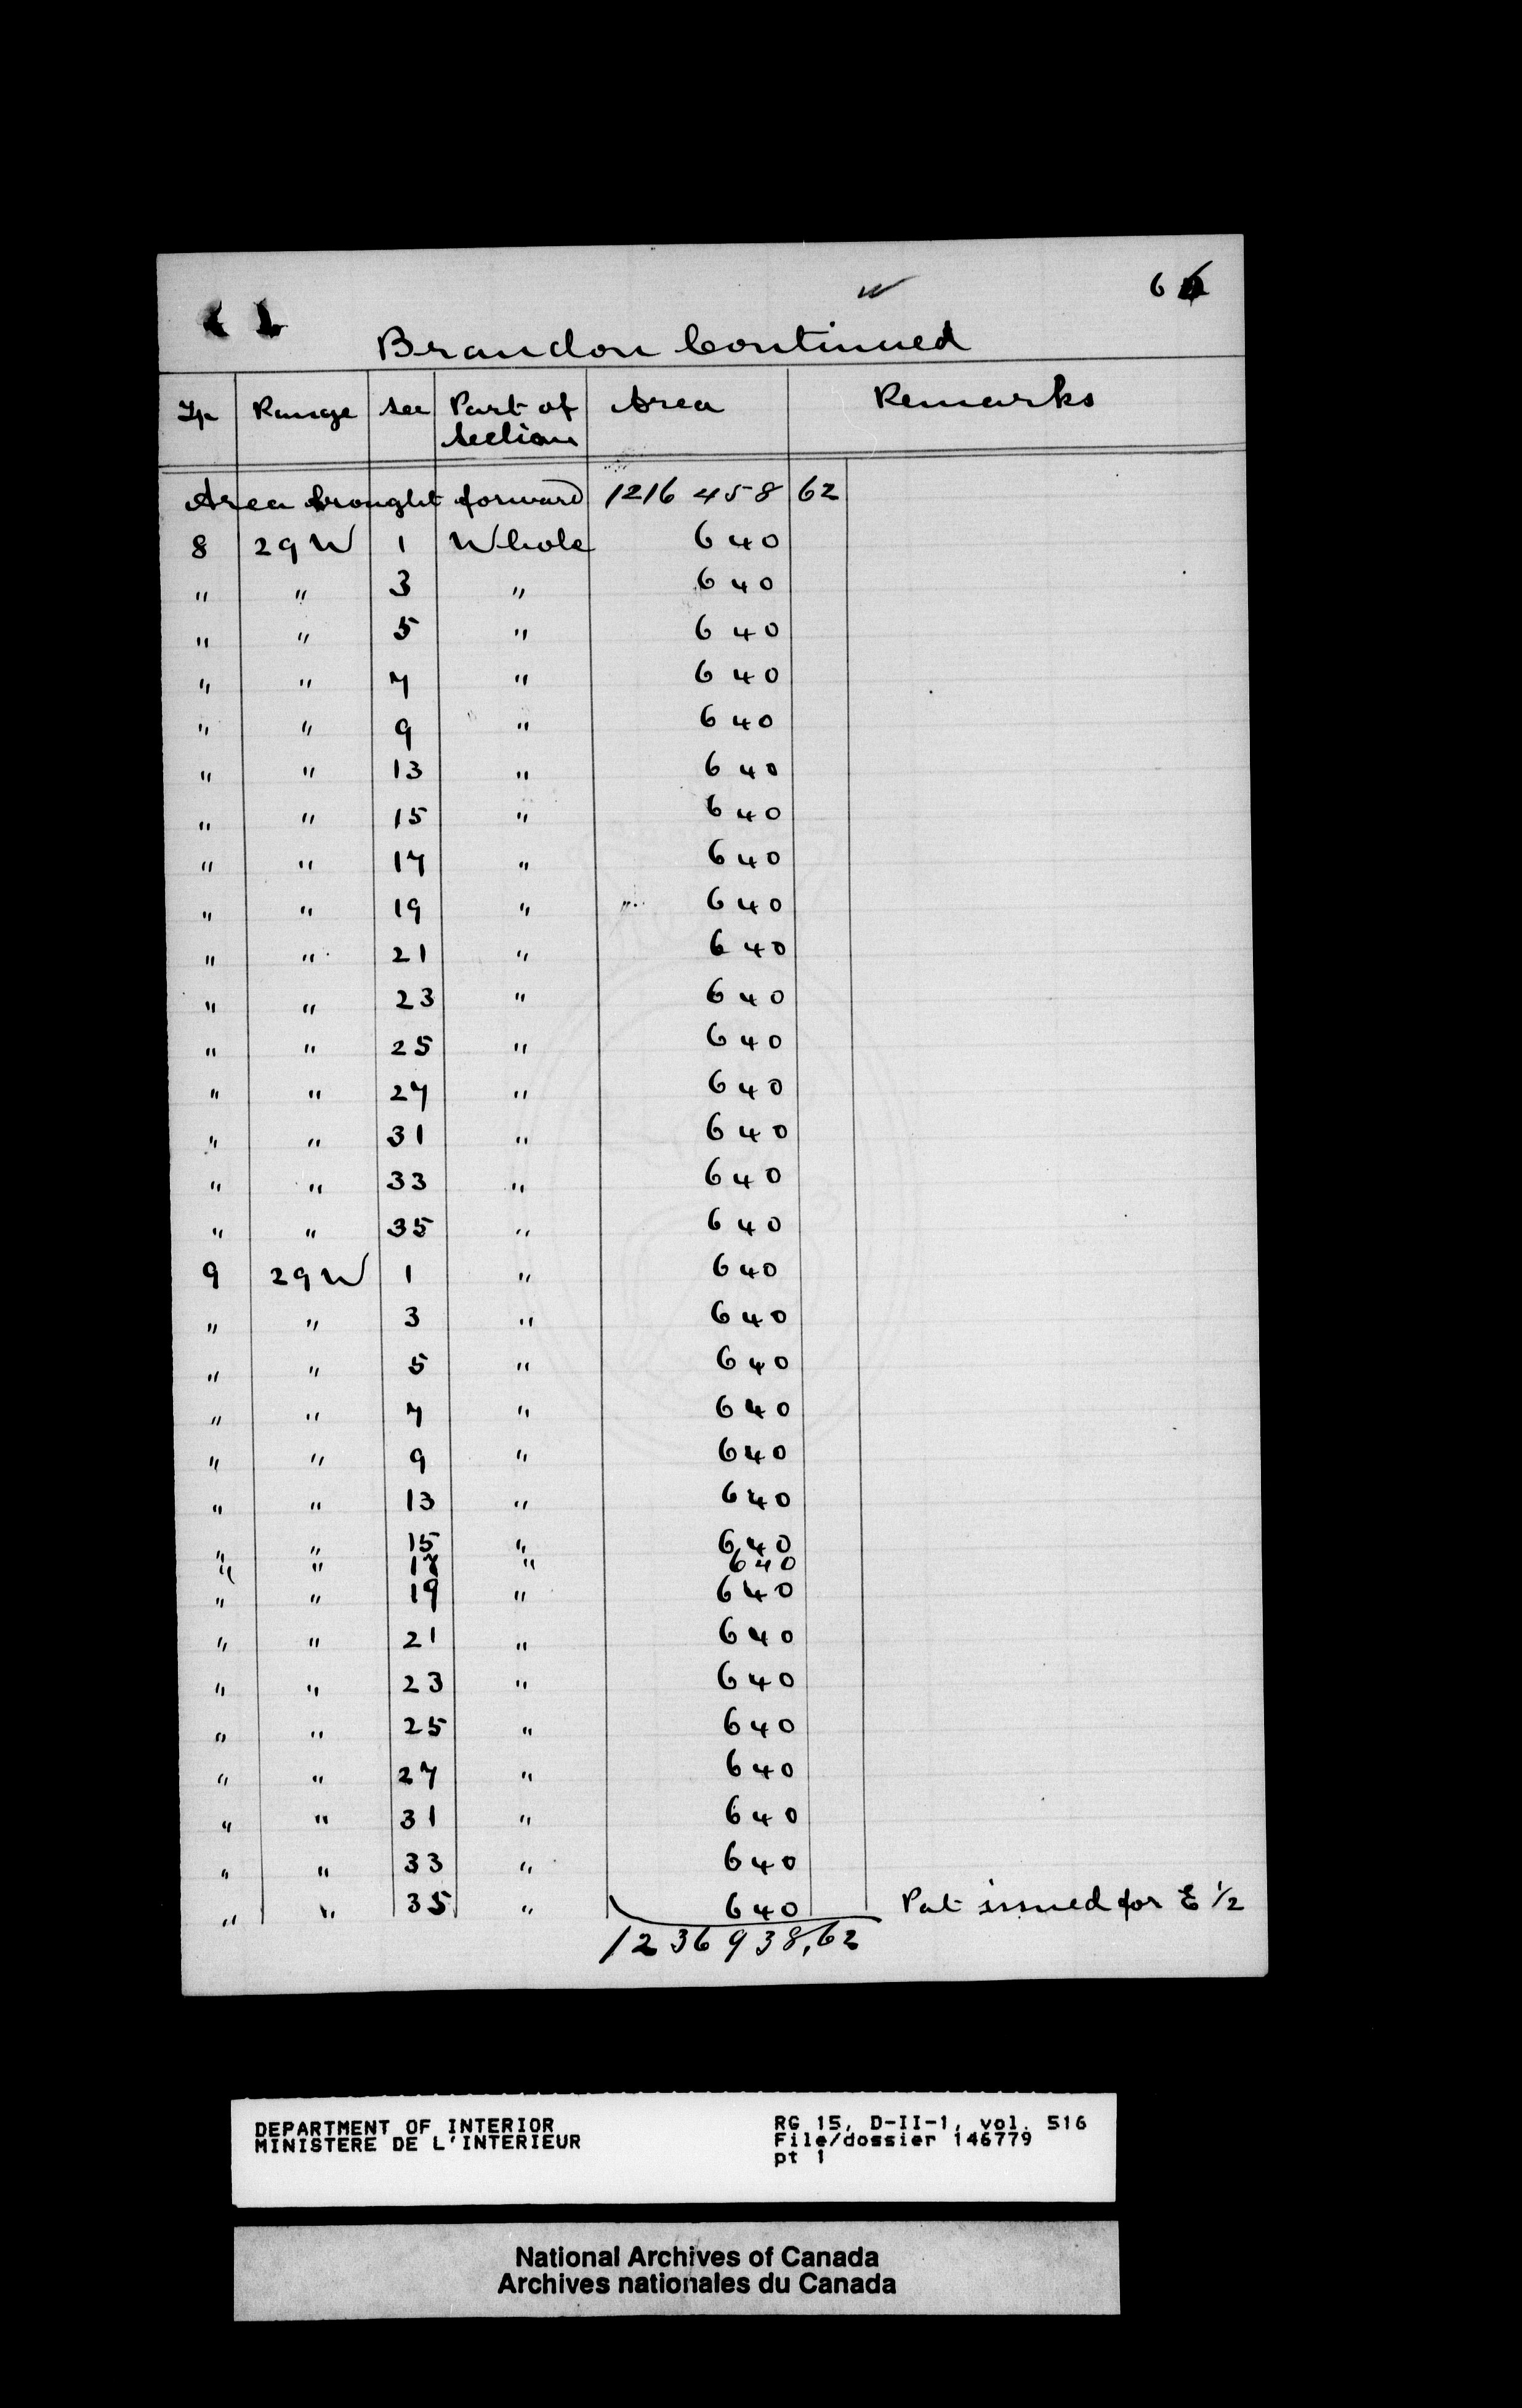 66
Brandon Continued
Tp Range Sec Part of Section Area Remarks
Area brought forward 1216 458 62
8 29 W 1 Whole 640
" " 3 " 640
" " 5 " 640
" " 7 " 640
" " 9 " 640
" " 13 " 640
" " 15 " 640
" " 17 " 640
" " 19 " 640
" " 21 " 640
" " 23 " 640
" " 25 " 640
" " 27 " 640
" " 31 " 640
" " 33 " 640
" " 35 " 640
9 29 W 1 " 640
" " 3 " 640
" " 5 " 640
" " 7 " 640
" " 9 " 640
" " 13 " 640
" " 15 " 640
" " 17 " 640
" " 19 " 640
" " 21 " 640
" " 23 " 640
" " 25 " 640
" " 27 " 640
" " 31 " 640
" " 33 " 640
" " 35 " 640 Pat issued for E 1/2
1236 938,62
DEPARTMENT OF INTERIOR
MINISTERE DE L'INTERIEUR
RG 15, D-II-1, vol. 516
File/dossier 146779
pt 1
National Archives of Canada
Archives nationales du Canada